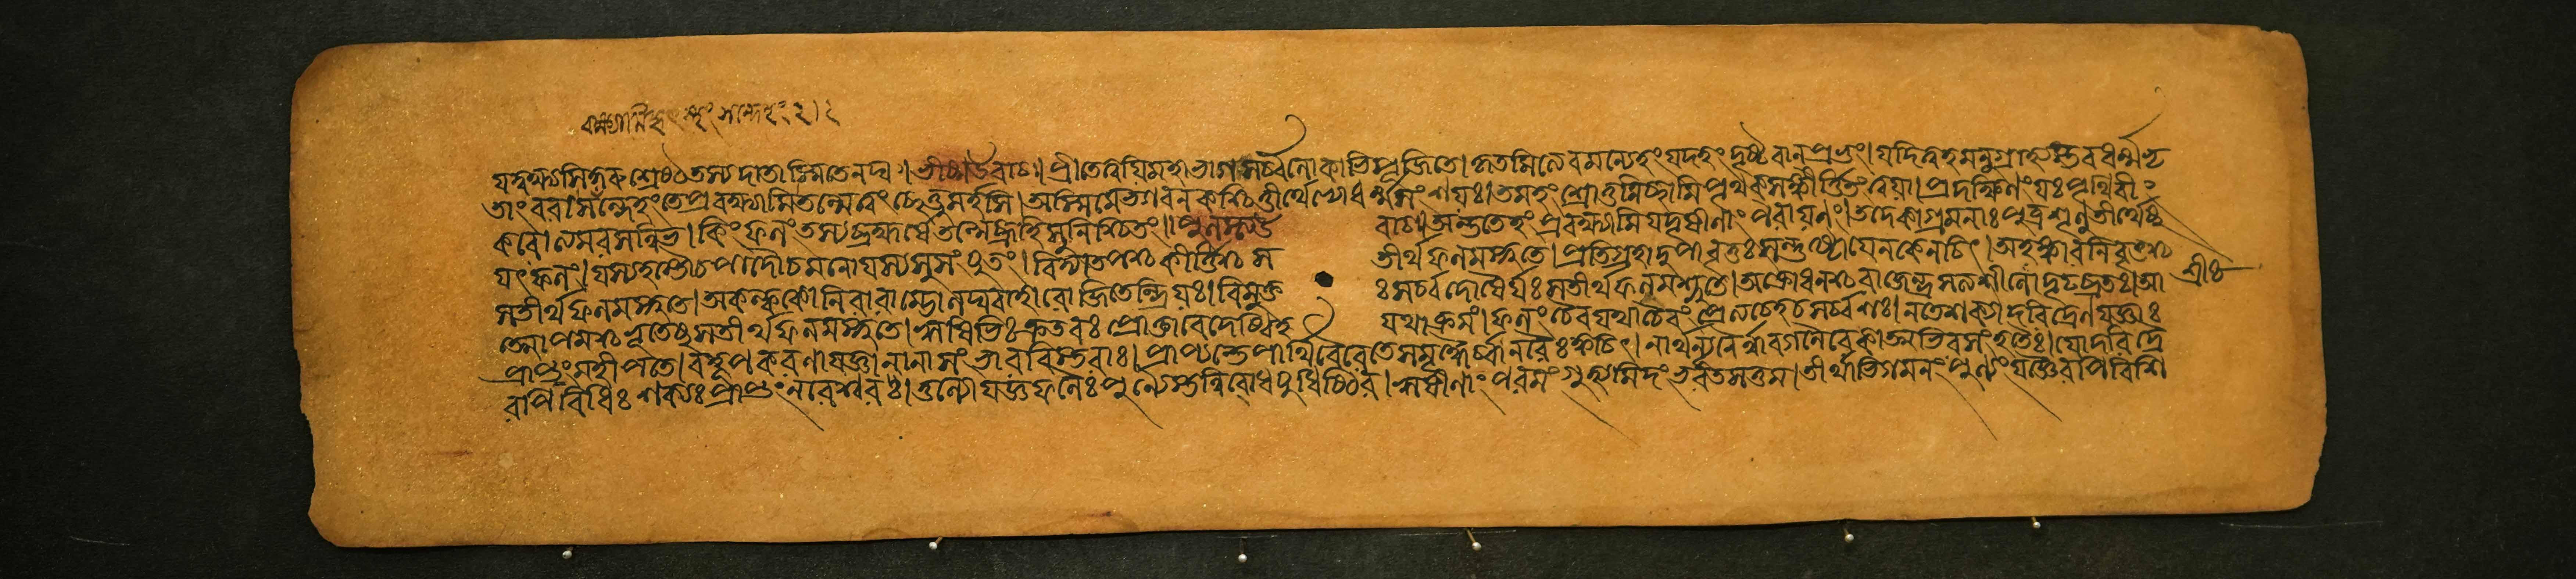 যদ্বক্ষ্যসি কুরুশ্রেষ্ঠ তস্য দাতাস্মি তেনঘ। ভীষ্ম উবাচ। প্রীতে ত্বয়ি মহাভাগ সর্ব্বলোকাভিপূজিতে। কৃতমিত্যেব মন্যেহং যদহং দৃষ্টবান্ প্রভুং। যদি ত্বহমনুগ্রাহ্যস্তব ধর্ম্মভৃ
তাং বর। সন্দেহং তে প্রবক্ষ্যামি তন্মে ত্বং ছেত্তুমর্হসি। অস্তি মে ভগবন্ কশ্চিত্তীর্থেভ্যো ধর্ম্মসংশয়ঃ। তমহং শ্রোতুমিচ্ছামি পৃথক্সঙ্কীর্ত্তিতং ত্বয়া। প্রদক্ষিণং যঃ পৃথিবীং
করোত্যমরসন্নিভ। কিং ফলং তস্য ব্রহ্মর্ষে তন্মে ব্রূহি সুনিশ্চিতং॥ পুলস্ত্য উবাচ॥ হন্ত তেহং প্রবক্ষ্যামি যদৃষীণাং পরায়ণং। তদেকাগ্রমনাঃ পুত্র শৃণু তীর্থেষু
যৎ ফলং। যস্য হস্তৌ চ পাদৌ চ মনো যস্য সুসংযুতং। বিদ্যা তপশ্চ কীর্ত্তিশ্চ স তীর্থফলমশ্নুতে। প্রতিগ্রহাদুপাবৃত্তঃ সন্তুষ্টো যেন কেনচিৎ। অহঙ্কারনিবৃত্তশ্চ
স তীর্থফলমশ্নুতে। অকল্ককো নিরারম্ভো লঘ্বাহারো জিতেন্দ্রিয়ঃ। বিমুক্তঃ সর্ব্বদোষৈর্যঃ স তীর্থফলমশ্নুতে। অক্রোধনশ্চ রাজেন্দ্র সত্যশীলো দৃঢব্রতঃ। আ
ত্মোপমশ্চ ভূতেষু স তীর্থফলমশ্নুতে। ঋষিভিঃ ক্রতবঃ প্রোক্তা বেদেষ্বিহ যথাক্রমং। ফলং চৈব যথাতত্ত্বং প্রেত্য চেহ চ সর্ব্বশঃ। ন তে শক্যা দরিদ্রেণ যজ্ঞাঃ
প্রাপ্তুং মহীপতে। বহূপকরণা যজ্ঞা নানাসংভারবিস্তরাঃ। প্রাপ্যন্তে পার্থিবৈরেতে সমৃদ্ধৈর্ব্বা নরৈঃ ক্বচিৎ। নার্থন্যূনৈ একাত্মভিরসংহতৈঃ। যো দরিদ্রৈ
রপি বিধিঃ শক্যঃ প্রাপ্তুং নরেশ্বর। তুল্যো যজ্ঞফলৈঃ পুণ্যৈস্তন্নিবোধ যুধিষ্ঠির। ঋষীণাং পরমং গুহ্যমিদং ভরতসত্তম। তীর্থাভিগমনং পুণ্যং যজ্ঞৈরপি বিশি